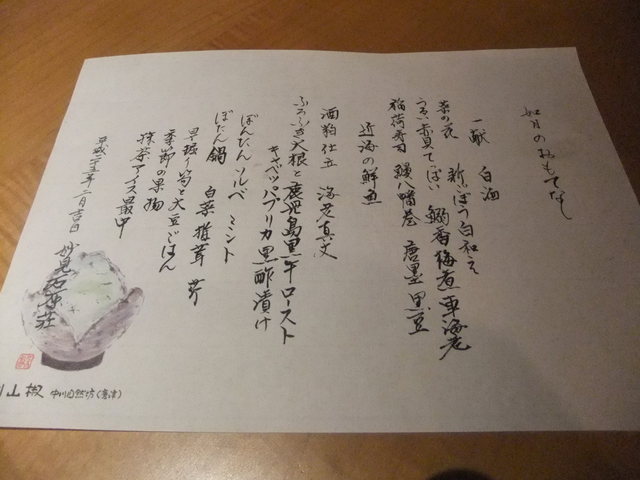 如月のおもてなし
一献 白酒
菜の花 新ごぼう白和え
うるい赤貝てっぱい 鰯香梅煮 車海老
稲荷寿司 鰻八幡巻 唐墨 黒豆
近海の鮮魚
酒粕仕立 海老真丈
ふろふき大根と鹿児島黒牛ロースト
キャベツパプリカ黒酢漬け
ぼんたんソルベ ミント
ぼたん鍋 白菜 椎茸 芹
早堀り筍と大豆ごはん
季節の果物
抹茶アイス最中
平成二十五年二月吉日 妙見石原荘
山椒 中川自然坊(唐津)